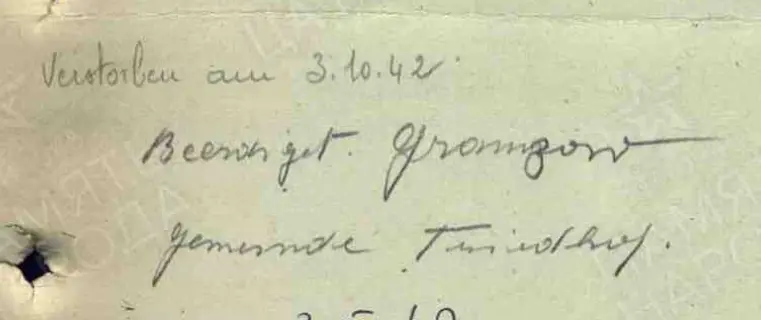 Verstorben am 3.10.42
Beerdiget. Gramzow
Gemeinde Friedhof.